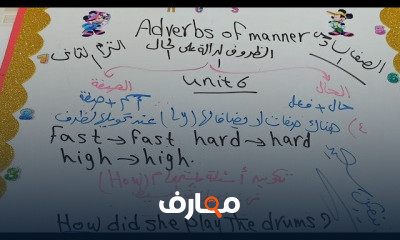 Adverbs of manner
الصف السادس
الظروف الدالة على الحال
الترم الثاني
unit 6
الحال
الصفة
حال + فعل
اسم + صفة
٤) هناك صفات لا يضاف لها (ly) عند تحويلها لظرف
fast → fast, hard → hard
high → high.
تكوين أسئلة
(How)
معارف
How did she play the drums?